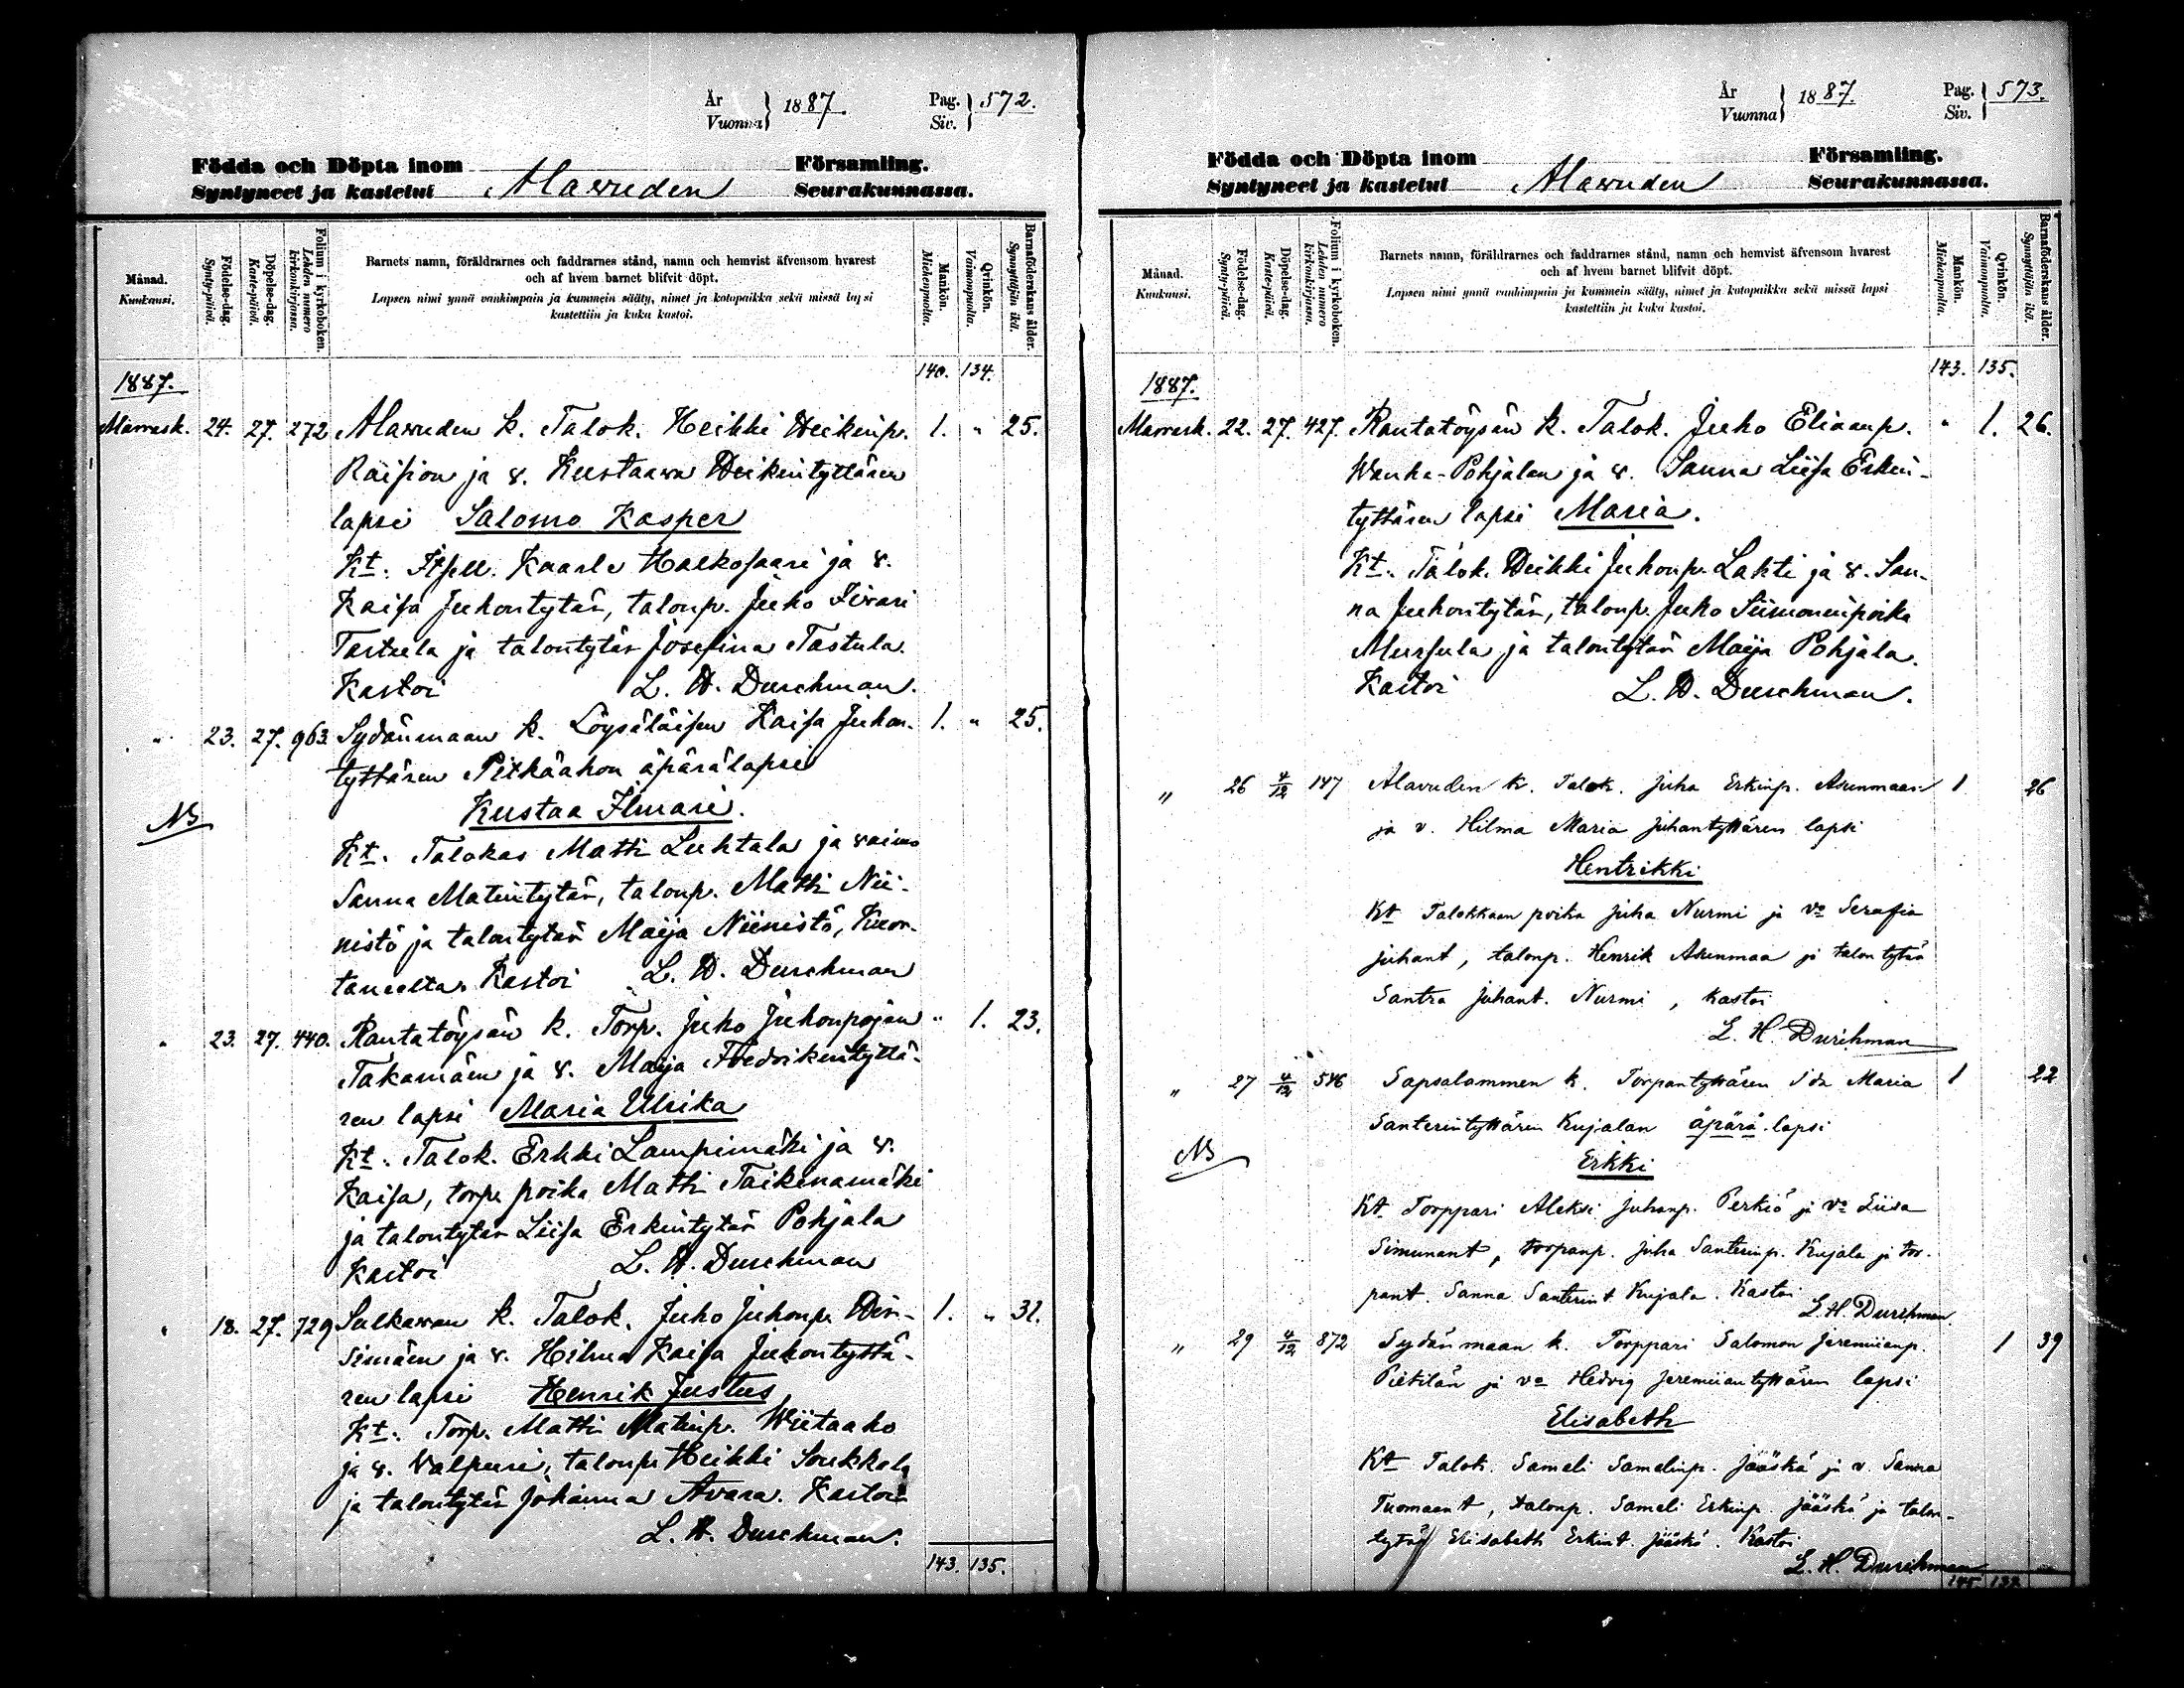 År
Vuonna } 1887. Pag.
Siv. } 572.
Födda och Döpta inom Församling.
Syntyneet ja kastetut Alavuden Seurakunnassa.
Månad.
Kuukausi.
Födelse-dag.
Synty-päivä.
Döpelse-dag.
Kaste-päivä.
Folium i kyrkoboken.
Lehden numero
kirkonkirjassa.
Barnets namn, föräldrarnes och faddrarnes stånd, namn och hemvist äfvensom hvarest
och af hvem barnet blifvit döpt.
Lapsen nimi ynnä vanhimpain ja kummein sääty, nimet ja kotopaikka sekä missä lapsi
kastettiin ja kuka kastoi.
Mankön.
Miehenpuolia.
Qvinkön.
Vaimonpuolia.
Barnaföderskans ålder.
Synnyttäjän ikä.
1887. 140. 134.
Marrask. 24. 27. 272 Alavuden k. Talok. Heikki Heikinp. 1. " 25.
Raision ja v. Kustaava Heikintyttären
lapsi Salomo Kasper
Kt. Itsell. Kaarle Halkosaari ja v.
Kaisa Juhontytär, talonp. Juho Iivari
Tastula ja talontytär Josefina Tastula.
Kastoi L. H. Durchman.
" 23. 27. 963 Sydänmaan k. Löysäläisen Kaisa Juhon- 1. " 25.
tyttären Pitkäahon äpärälapsi
Kustaa Ilmari.
NB
Kt. Talokas Matti Luhtala ja vaimo
Sanna Matintytär, talonp. Matti Nii-
nistö ja talontytär Maija Niinistö, Kuor-
taneelta. Kastoi L. H. Durchman
" 23. 27. 440. Rantatöysän k. Torp. Juho Juhonpojan " 1. 23.
Takamäen ja v. Maija Fredrikintyttä-
ren lapsi Maria Ulrika
Kt. Talok. Erkki Lampimäki ja v.
Kaisa, torp. poika Matti Taikinamäki
ja talontytär Liisa Erkintytär Pohjala
Kastoi L. H. Durchman
" 18. 27. 729 Sulkavan k. Talok. Juho Juhonp. Hir- 1. " 31.
simäen ja v. Hilma Kaisa Juhontyttä-
ren lapsi Henrik Justus
Kt. Torp. Matti Matinp. Wiitaaho
ja v. Valpuri, talonp. Heikki Soukkala
ja talontytär Johanna Avara. Kastoi
L. H. Durchman.
143. 135.
År
Vuonna } 1887. Pag.
Siv. } 573.
Födda och Döpta inom Församling.
Syntyneet ja kastetut Alavuden Seurakunnassa.
Månad.
Kuukausi.
Födelse-dag.
Synty-päivä.
Döpelse-dag.
Kaste-päivä.
Folium i kyrkoboken.
Lehden numero
kirkonkirjassa.
Barnets namn, föräldrarnes och faddrarnes stånd, namn och hemvist äfvensom hvarest
och af hvem barnet blifvit döpt.
Lapsen nimi ynnä vanhimpain ja kummein sääty, nimet ja kotopaikka sekä missä lapsi
kastettiin ja kuka kastoi.
Mankön.
Miehenpuolia.
Qvinkön.
Vaimonpuolia.
Barnaföderskans ålder.
Synnyttäjän ikä.
1887. 143. 135.
Marrask. 22. 27. 427. Rantatöysän k. Talok. Juho Eliaanp. " 1. 26.
Wanha-Pohjalan ja v. Sanna Liisa Erkin-
tyttären lapsi Maria.
Kt. Talok. Heikki Juhonp. Lahti ja v. San-
na Juhontytär, talonp. Juho Siimoninpoika
Mursula ja talontytär Maija Pohjala.
Kastoi L. H. Durchman.
" 26 4/12 147 Alavuden k. Talok. Juha Erkinp. Asunmaan 1 26
ja v. Hilma Maria Juhantyttären lapsi
Hentrikki
Kt Talokkaan poika Juha Nurmi ja vo Serafia
Juhant, talonp. Henrik Asunmaa ja talon tytär
Santra Juhant. Nurmi, kastoi
L. H. Durchman
" 27 4/12 546 Sapsalammen k. Torpantyttären Ida Maria 1 22
Santerintyttären Kujalan äpärä-lapsi
NB
Erkki
Kt. Torppari Aleksi Juhanp. Perkiö ja vo Liisa
Simunant, torpanp. Juha Santerinp. Kujala ja tor-
pant. Sanna Santerint Kujala. Kastoi
L. H. Durchman
" 29 4/12 872 Sydänmaan k. Torppari Salomon Jeremiianp. 1 39
Pietilän ja vo Hedvig Jeremiiantyttären lapsi
Elisabeth
Kt Talok. Sameli Samelinp. Jääskä ja v. Sanna
Tuomaant, talonp. Sameli Erkinp. Jääskä ja talon-
tytär Elisabeth Erkint. Jääskä. Kastoi
L. H. Durchman